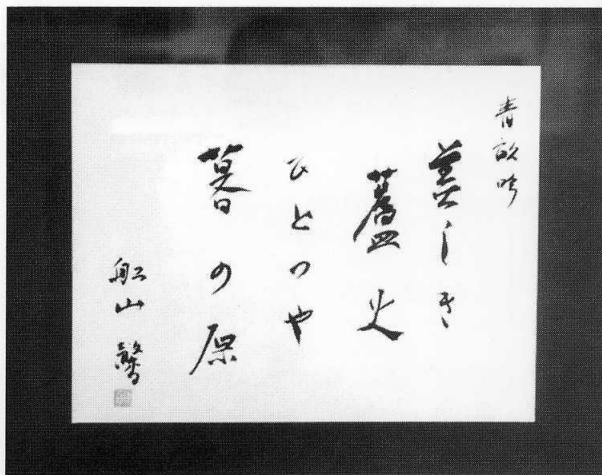 青畝吟
美しき
蘆火
ひとつや
暮の原
船山馨